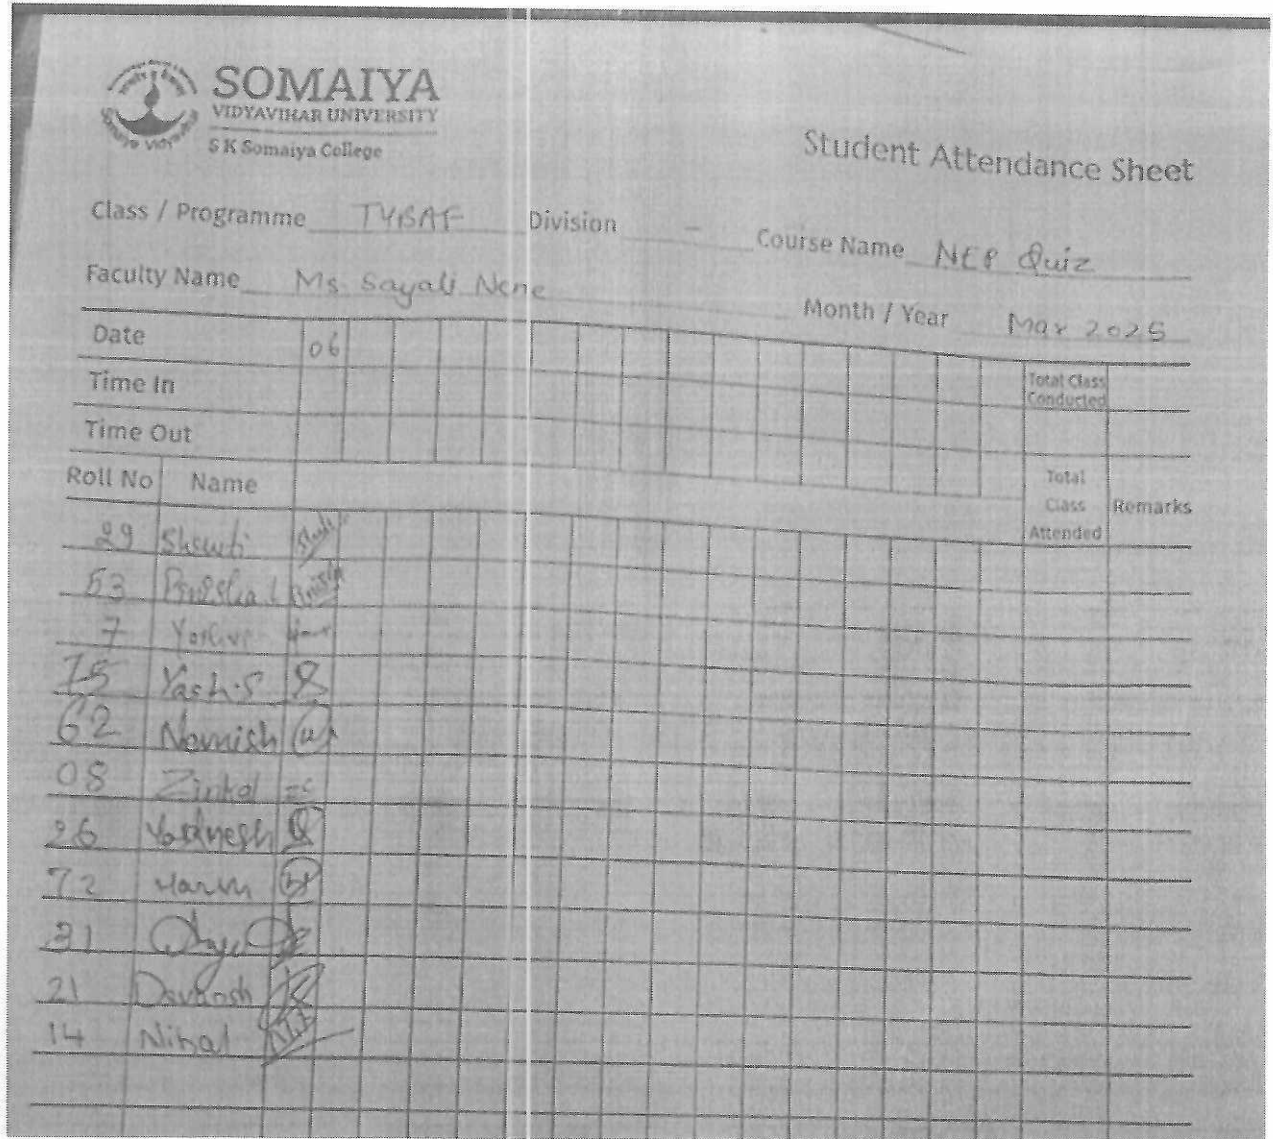 SOMAIYA
VIDYAVIHAR UNIVERSITY
S K Somaiya College
Student Attendance Sheet
Class / Programme TYBAF Division - Course Name NEP Quiz
Faculty Name Ms. Sayali Nene Month / Year Mar 2025
Date 06
Time In Total Class Conducted
Time Out
Roll No Name Total Class Attended Remarks
29
53
7
75 Yash.S
62 Namish
08 Zinkal
26 Yadnesh
72
31
21 Devansh
14 Nihal